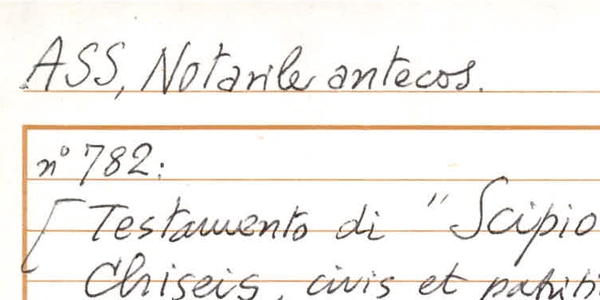 ASS, Notarile antecos.
n° 782:
[Testamento di "Scipio
Chiseis, civis et patriti